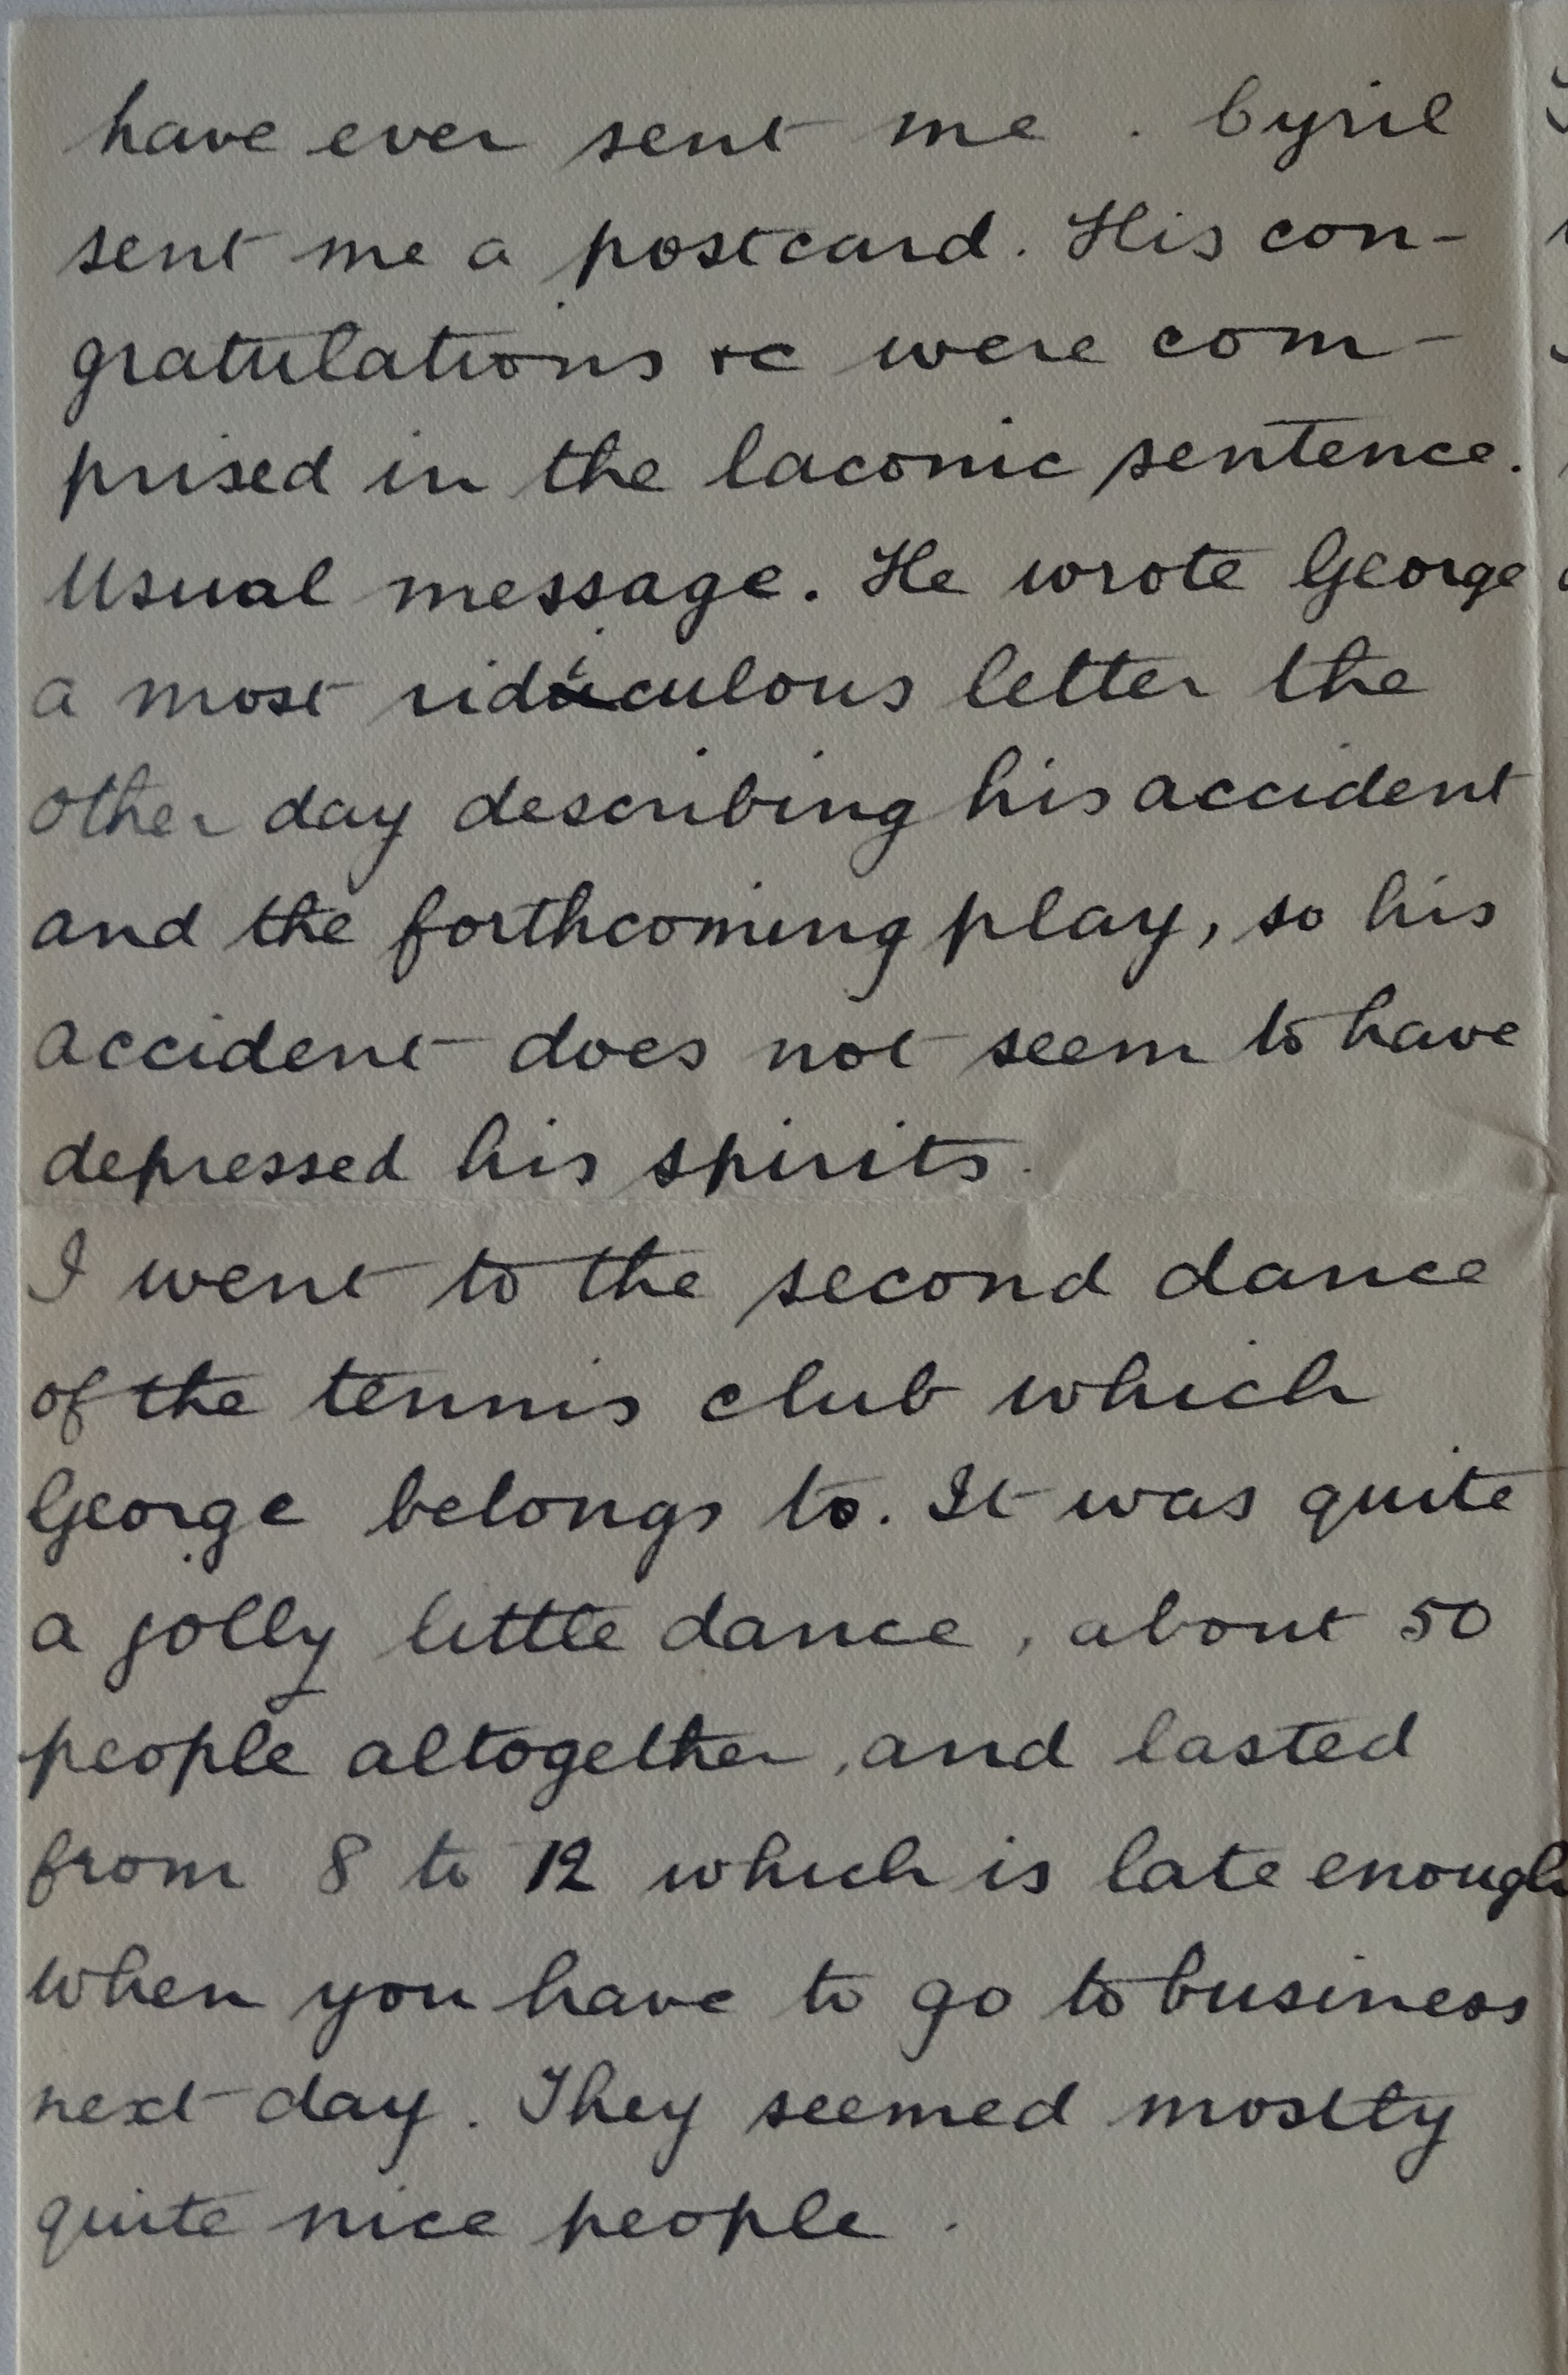 have ever sent me . Cyril
sent me a postcard. His con-
gratulations &c were com-
prised in the laconic sentence.
Usual message. He wrote George
a most ridiculous letter the
other day describing his accident
and the forthcoming play, so his
accident does not seem to have
depressed his spirits.
I went to the second dance
of the tennis club which
George belongs to. It was quite
a jolly little dance, about 50
people altogether, and lasted
from 8 to 12 which is late enough
when you have to go to business
next day. They seemed mostly
quite nice people.